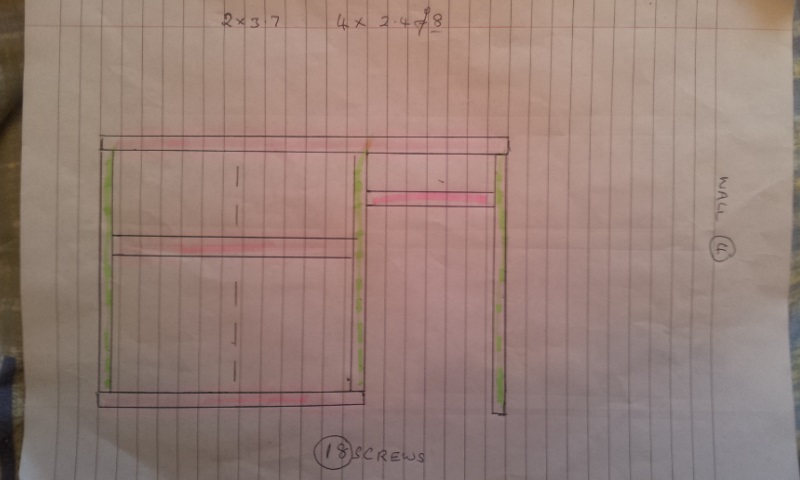 2x3.7 4x 2.4 8
WALL 4
18 SCREWS